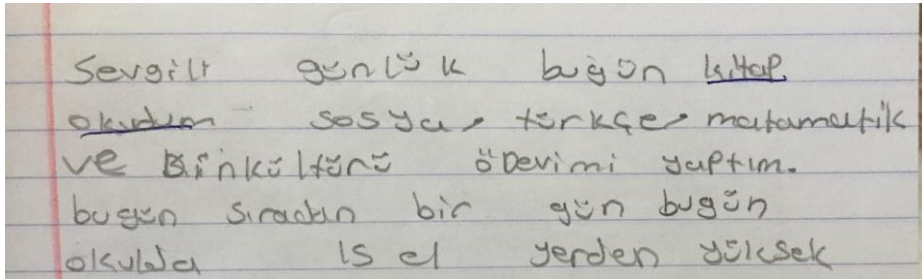 Sevgili günlük bugün kitap
okudum sosya, türkçe, matamatik
ve Dinkültürü ödevimi yaptım.
bugün sıradan bir gün bugün
okulda el yerden yüksek